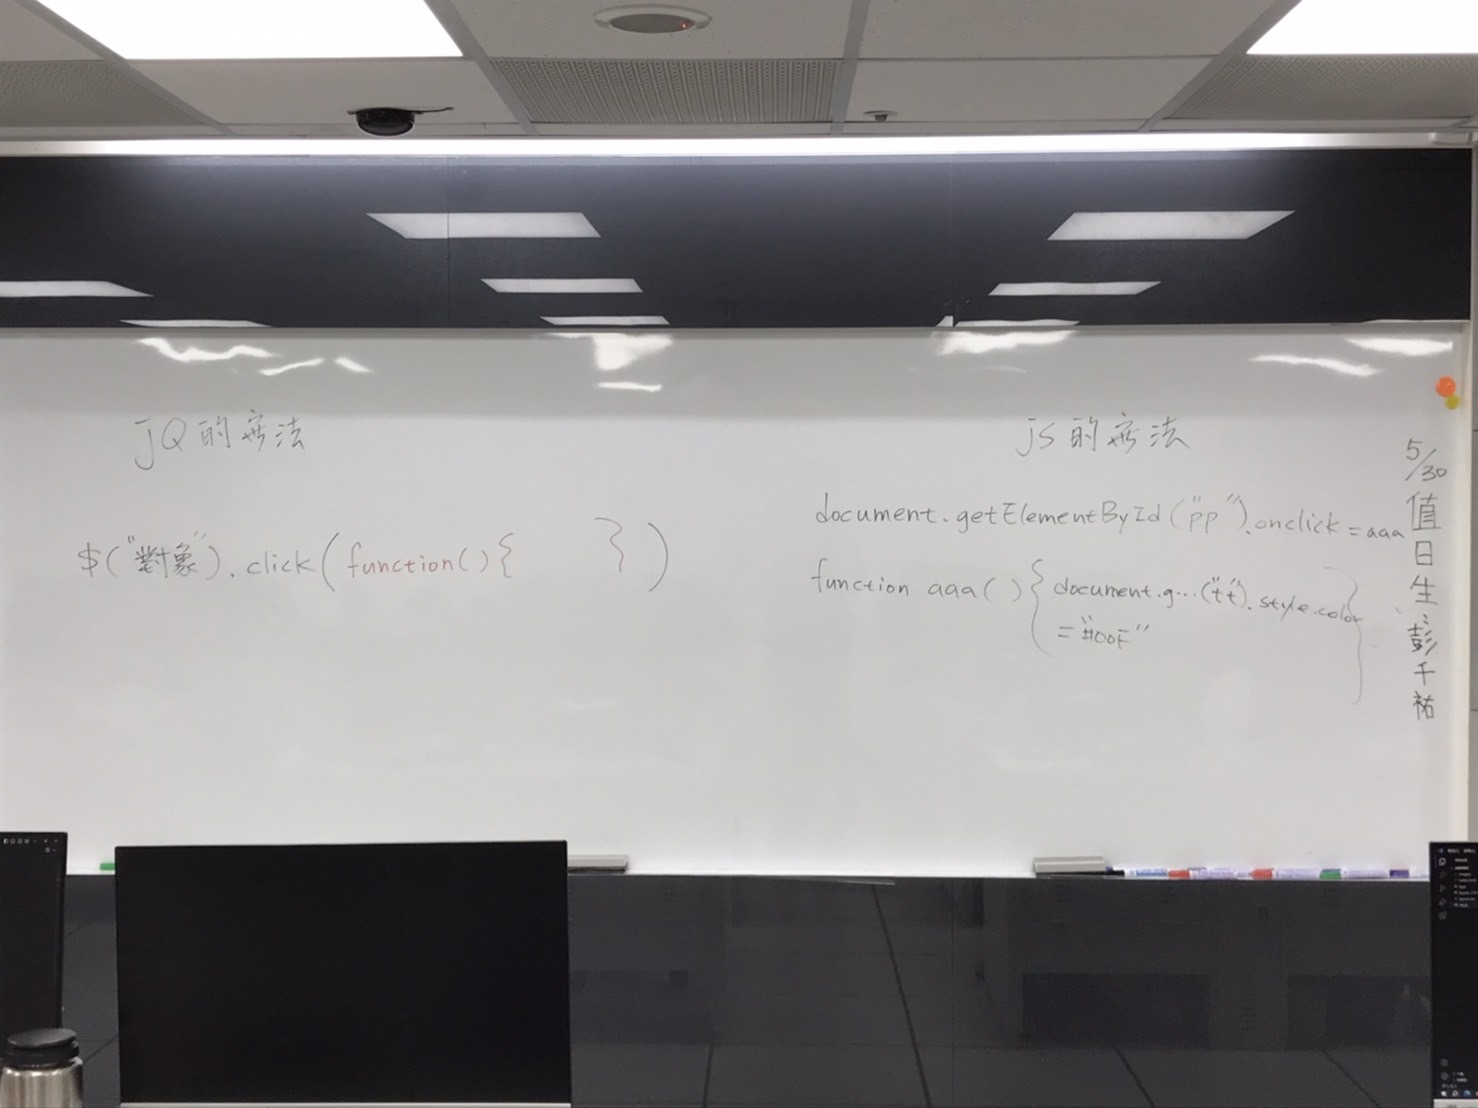 jQ的寫法
$("對象").click(function(){ })
js的寫法
document.getElementById("pp").onclick=aaa
function aaa(){document.g...("tt").style.color
="#00F"
}
5/30
值日生:彭千祐